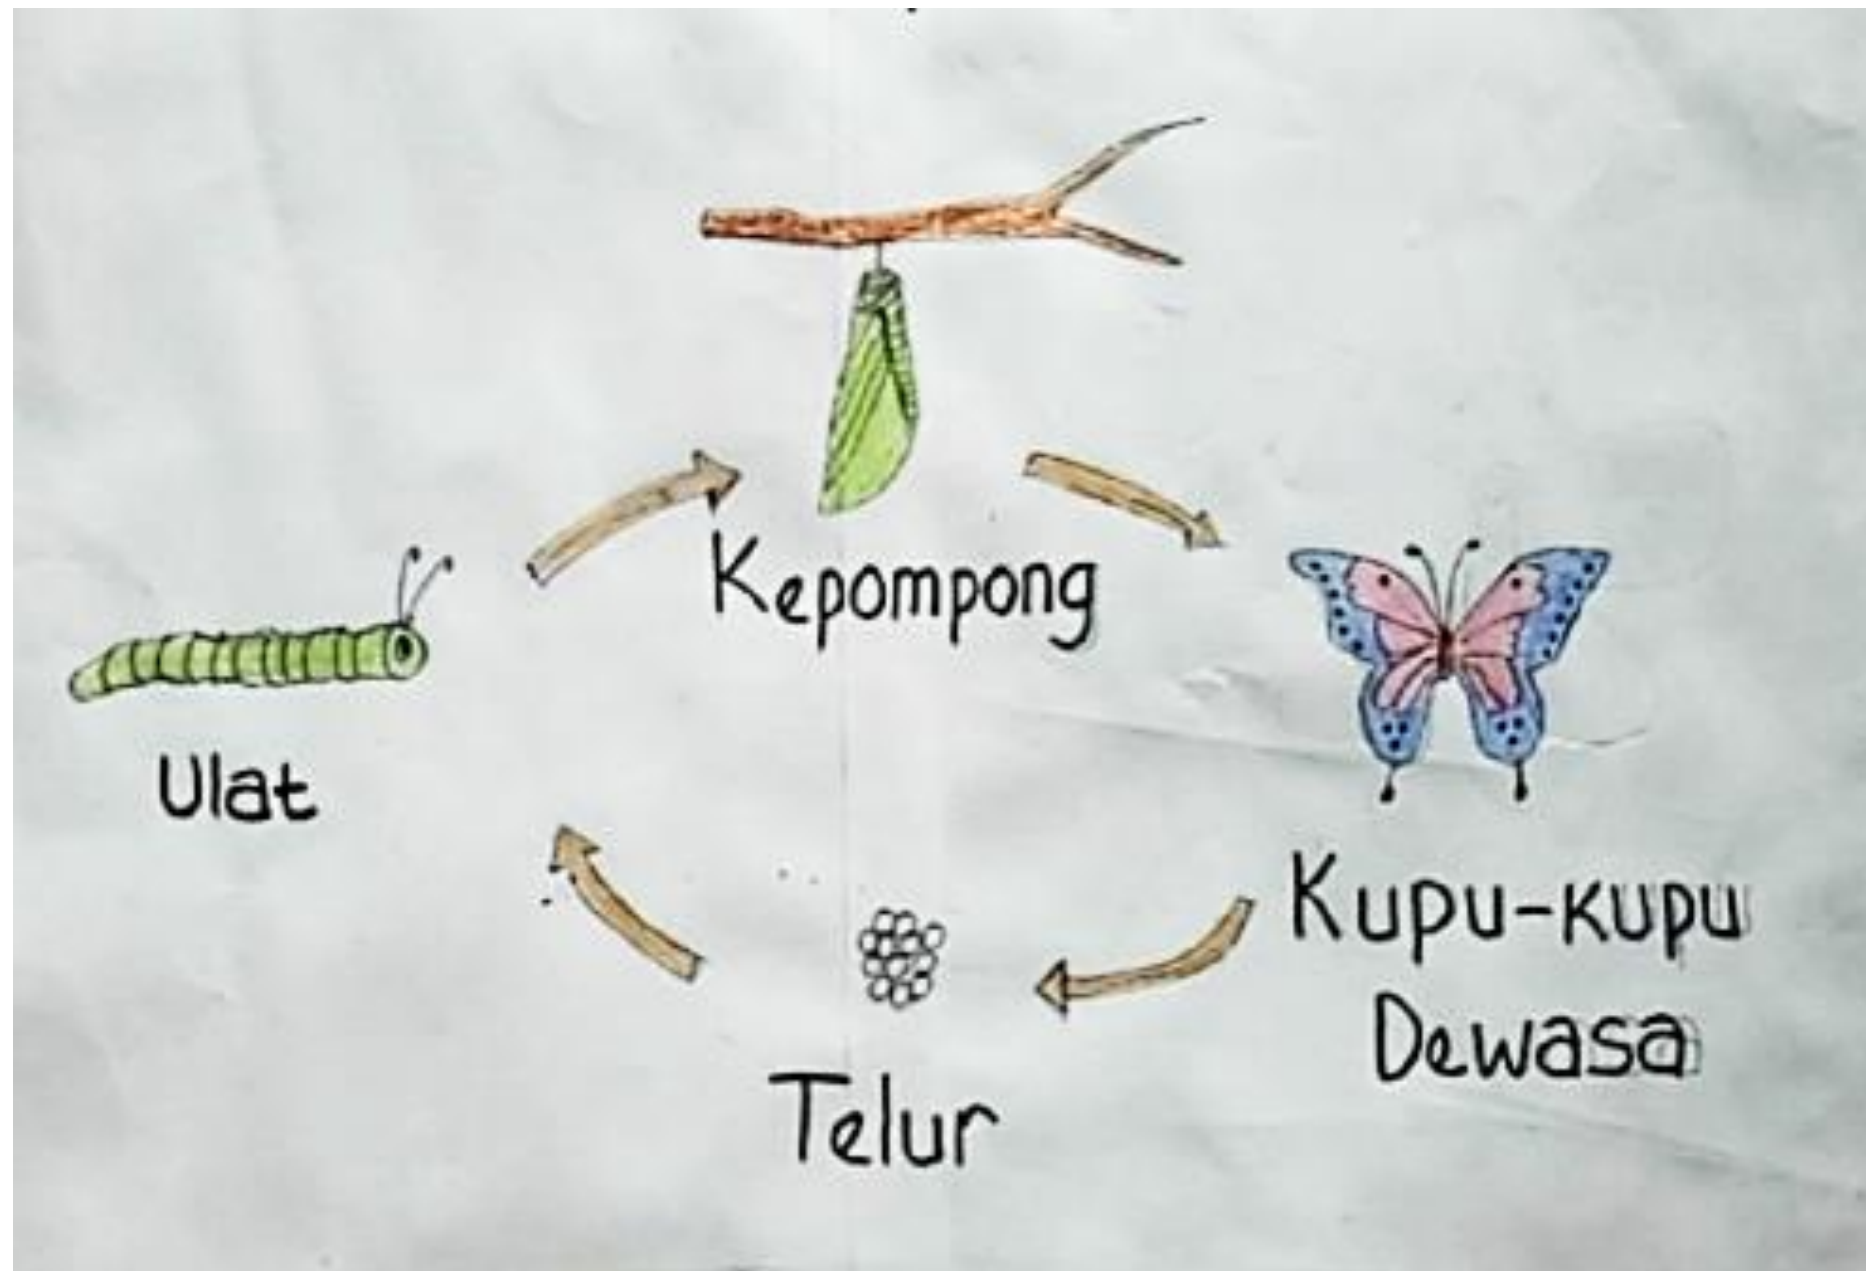 Kepompong
Ulat
Kupu-kupu
Dewasa
Telur